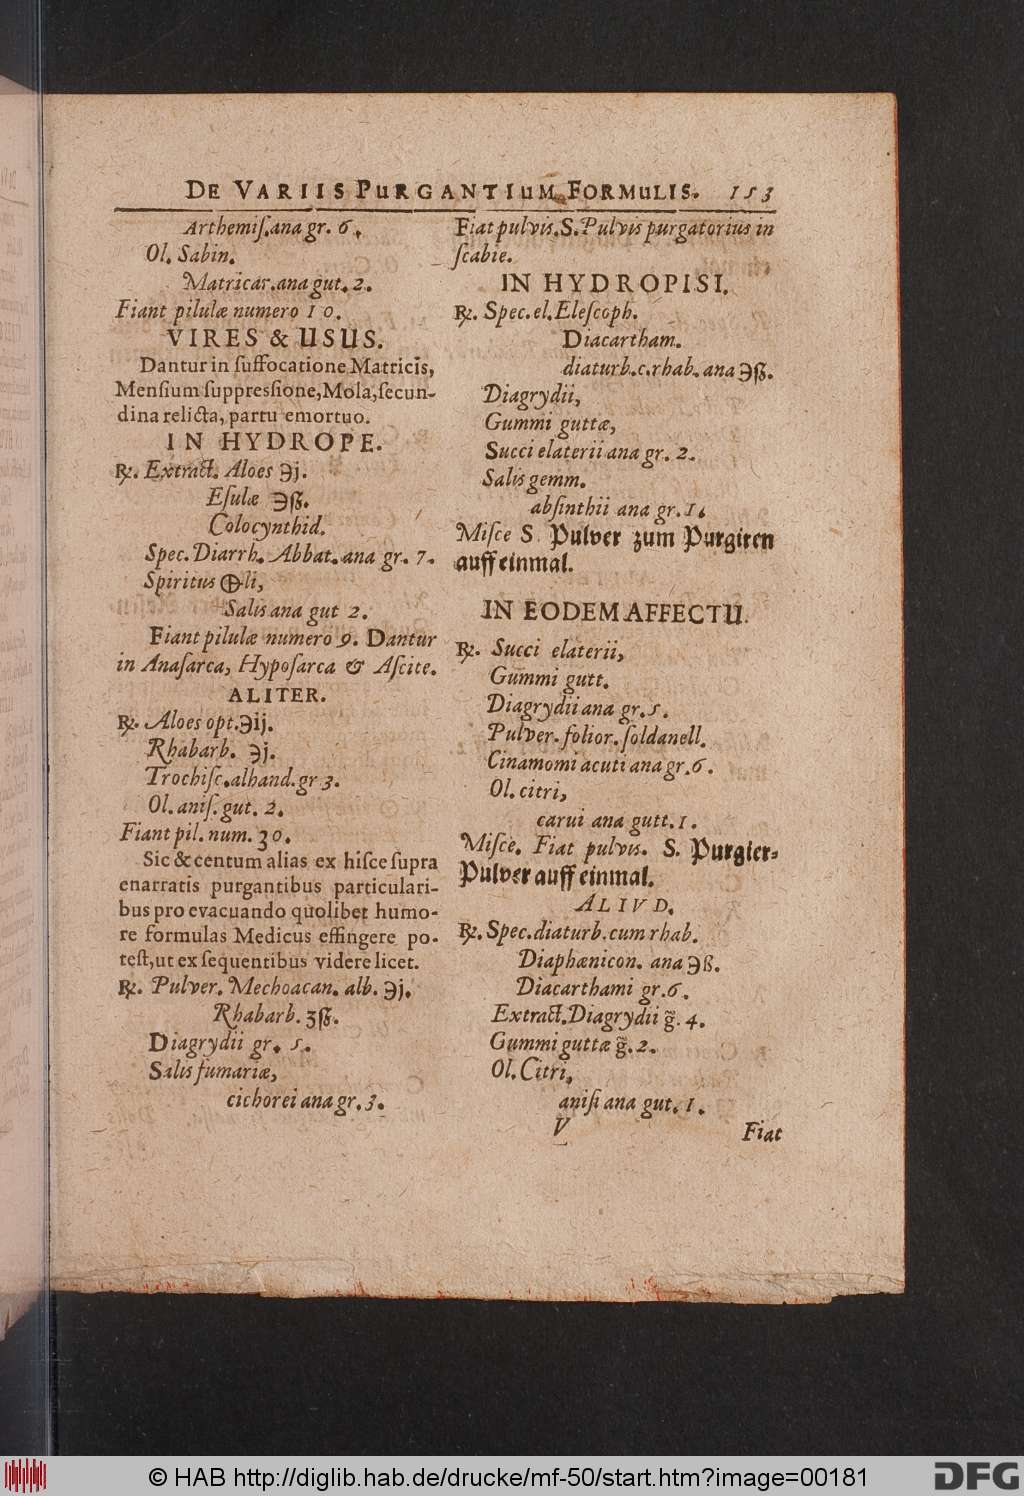 DE VARIIS PURGANTIUM FORMULIS. 153
Arthemiſ. ana gr. 6.
Ol. Sabin.
Matricar. ana gut. 2.
Fiant pilulæ numero 10.
VIRES & USUS.
Dantur in ſuffocatione Matricis,
Menſium ſuppreſsione, Mola, ſecun-
dina relicta, partu emortuo.
IN HYDROPE.
℞. Extract. Aloes ℈j.
Eſulæ ℈ß.
Colocynthid.
Spec. Diarrh. Abbat. ana gr. 7.
Spiritus 🜨li,
Salis ana gut 2.
Fiant pilulæ numero 9. Dantur
in Anaſarca, Hypoſarca & Aſcite.
ALITER.
℞. Aloes opt. ℈ij.
Rhabarb. ℈j.
Trochiſc. alhand. gr 3.
Ol. aniſ. gut. 2.
Fiant pil. num. 30.
Sic & centum alias ex hiſce ſupra
enarratis purgantibus particulari-
bus pro evacuando quolibet humo-
re formulas Medicus effingere po-
teſt, ut ex ſequentibus videre licet.
℞. Pulver. Mechoacan. alb. ℈j.
Rhabarb. ʒß.
Diagrydii gr. 5.
Salis fumariæ,
cichorei ana gr. 3.
Fiat pulvis. S. Pulvis purgatorius in
ſcabie.
IN HYDROPISI.
℞. Spec. el. Eleſcoph.
Diacartham.
diaturb. c. rhab. ana ℈ß.
Diagrydii,
Gummi guttæ,
Succi elaterii ana gr. 2.
Salis gemm.
abſinthii ana gr. 1.
Miſce S. Pulver zum Purgiren
auff einmal.
IN EODEM AFFECTU.
℞. Succi elaterii,
Gummi gutt.
Diagrydii ana gr. 5.
Pulver. folior. ſoldanell.
Cinamomi acuti ana gr. 6.
Ol. citri,
carui ana gutt. 1.
Miſce. Fiat pulvis. S. Purgier-
Pulver auff einmal.
ALIVD.
℞. Spec. diaturb. cum rhab.
Diaphænicon. ana ℈ß.
Diacarthami gr. 6.
Extract. Diagrydii g̃. 4.
Gummi guttæ g̃. 2.
Ol. Citri,
aniſi ana gut. 1.
V Fiat
© HAB http://diglib.hab.de/drucke/mf-50/start.htm?image=00181 DFG